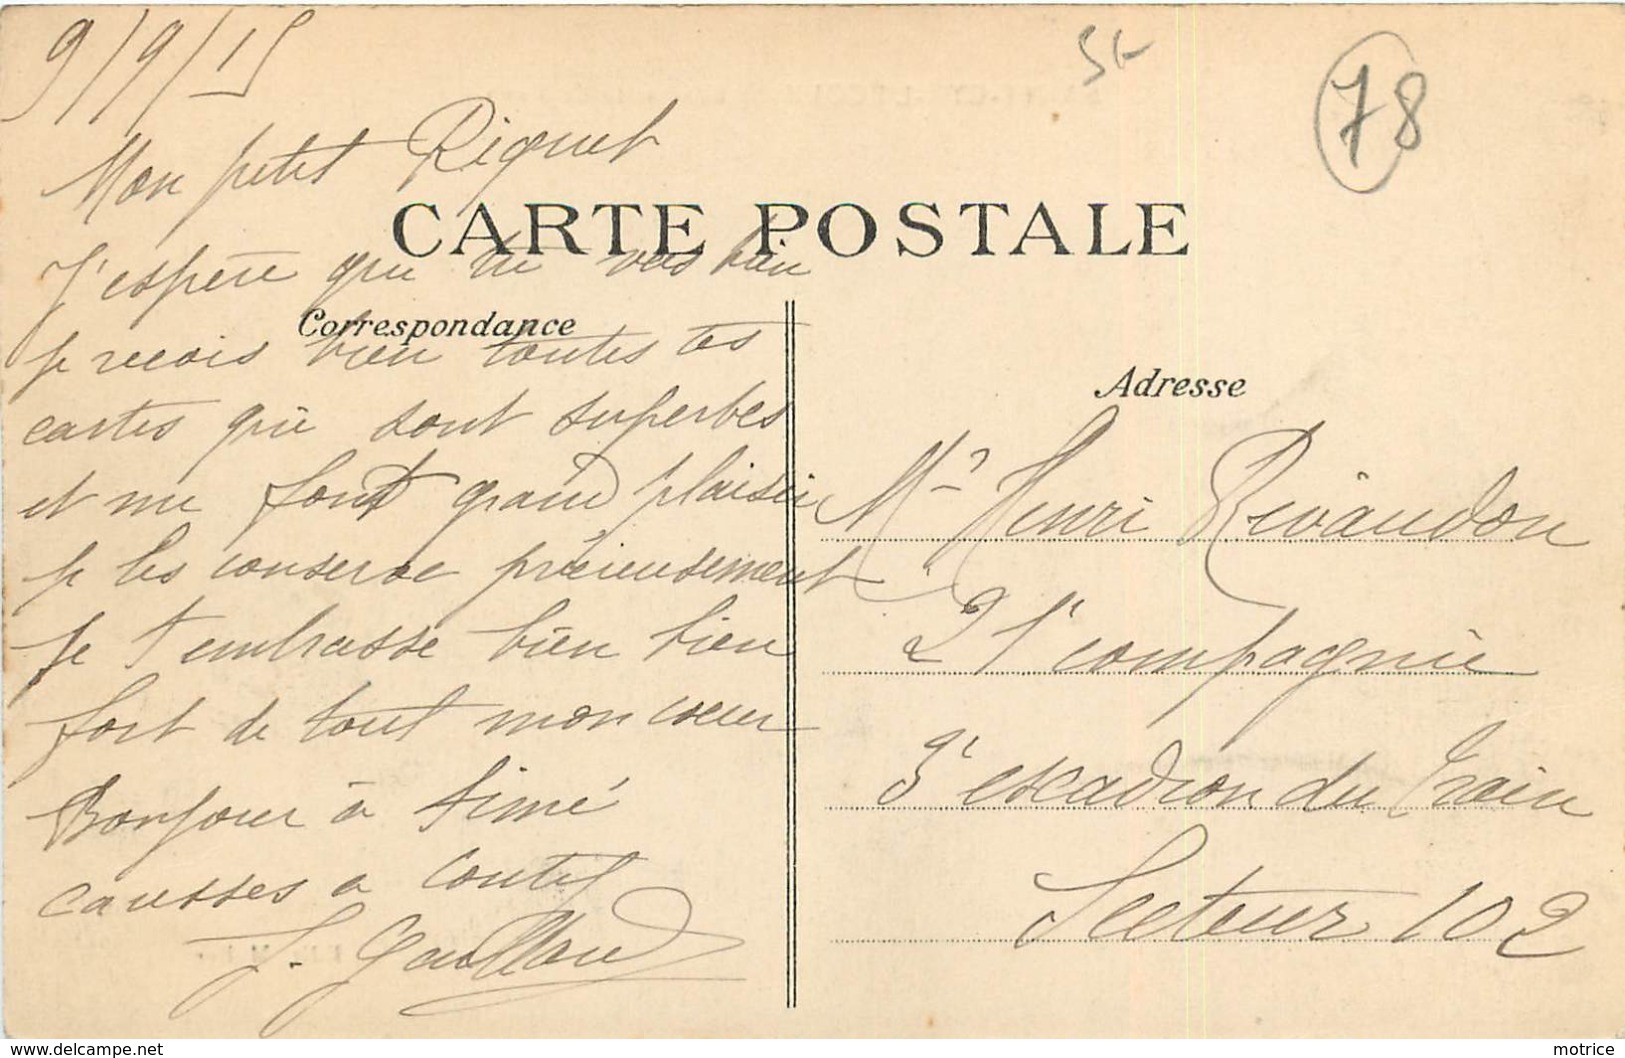 9/9/15
5€
78
Mon petit Riquet
CARTE POSTALE
J'espère que tu vas bien
Correspondance
je recois bien toutes tes
cartes qui sont superbes
et me font grand plaisir
je les conserve précieusement
je t'embrasse bien bien
fort de tout mon cœur
Bonjour à Aimé
causses a
J. Gaillard
Adresse
Mr Henri Rivaudon
21e compagnie
3e escadron du Train
Secteur 102
www.delcampe.net
motrice